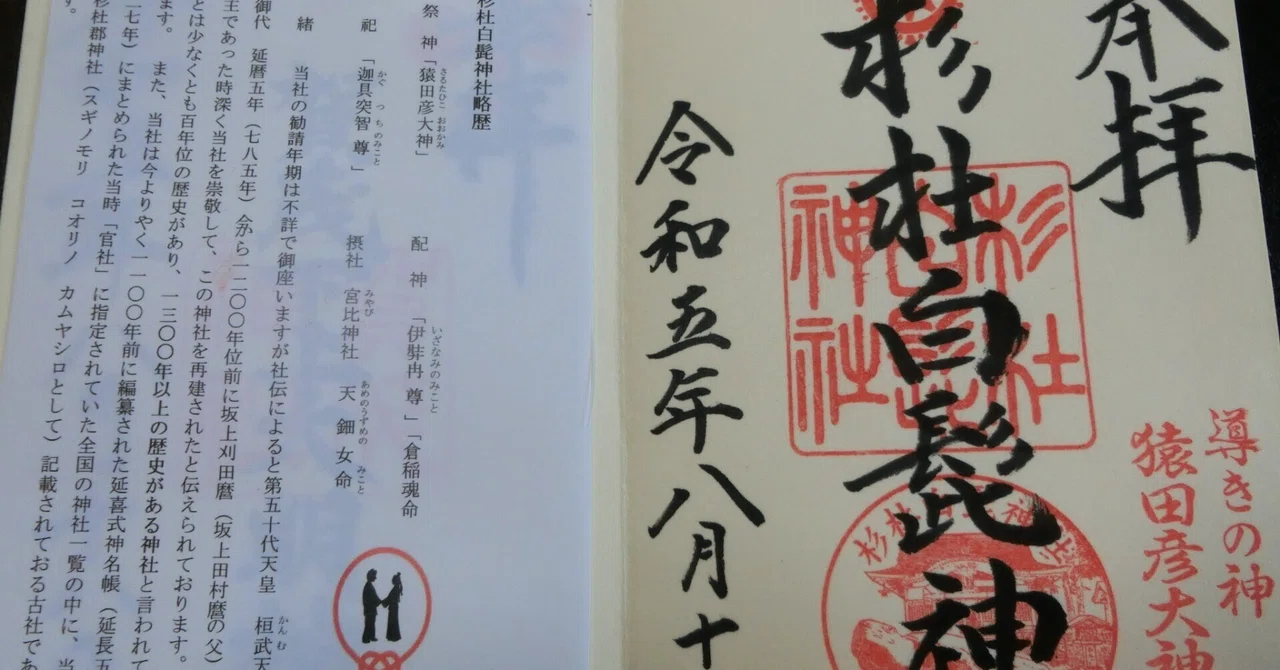 奉拝
導きの神
猿田彦大神
杉杜白髭神
杉杜
白髭
神社
令和五年八月十
杉杜白髭神社略歴
祭 神「猿田彦大神」 配 神 「伊弉冉 尊」「倉稲魂命
さるたひこ おおかみ いざなみのみこと
祀 「迦具突智 尊」 摂社 宮比神社 天 鈿 女 命
かぐ っ ちのみこと みやび あめのうずめの みこと
緒 当社の勧請年期は不詳で御座いますが社伝によると第五十代天皇 桓武天
かんむ
御代 延暦五年(七八五年)今から一二〇〇年位前に坂上刈田麿(坂上田村麿の父)
主であった時深く当社を崇敬して、この神社を再建されたと伝えられております。
とは少なくとも百年位の歴史があり、一三〇〇年以上の歴史がある神社と言われて
ます。 また、当社は今よりやく一一〇〇年前に編纂された延喜式神名帳(延長五
七年)にまとめられた当時「官社」に指定されていた全国の神社一覧の中に、当
杉杜郡神社(スギノモリ コオリノ カムヤシロとして)記載されておる古社であ
す。